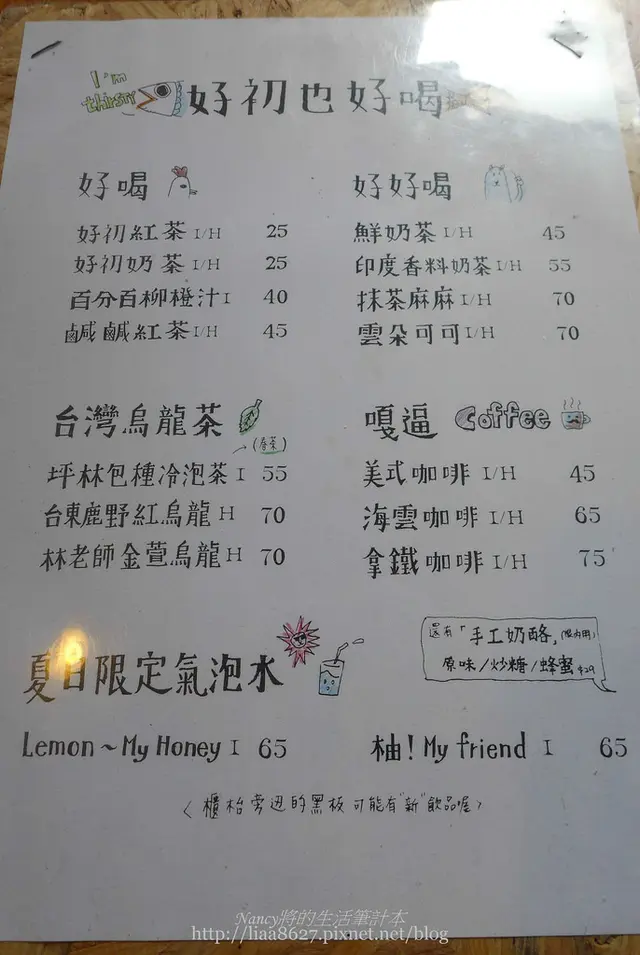 I'm thirsty
好初也好喝
好喝
好初紅茶 I/H 25
好初奶茶 I/H 25
百分百柳橙汁 I 40
鹹鹹紅茶 I/H 45
好好喝
鮮奶茶 I/H 45
印度香料奶茶 I/H 55
抹茶麻麻 I/H 70
雲朵可可 I/H 70
台灣烏龍茶
(春茶)
坪林包種冷泡茶 I 55
台東鹿野紅烏龍 H 70
林老師金萱烏龍 H 70
嘎逼 Coffee
美式咖啡 I/H 45
海雲咖啡 I/H 65
拿鐵咖啡 I/H 75
還有「手工奶酪」(限內用)
原味/炒糖/蜂蜜 $29
夏日限定氣泡水
Lemon~My Honey I 65
柚! My friend I 65
<櫃枱旁邊的黑板可能有"新"飲品喔>
Nancy將的生活筆計本
http://liaa8627.pixnet.net/blog